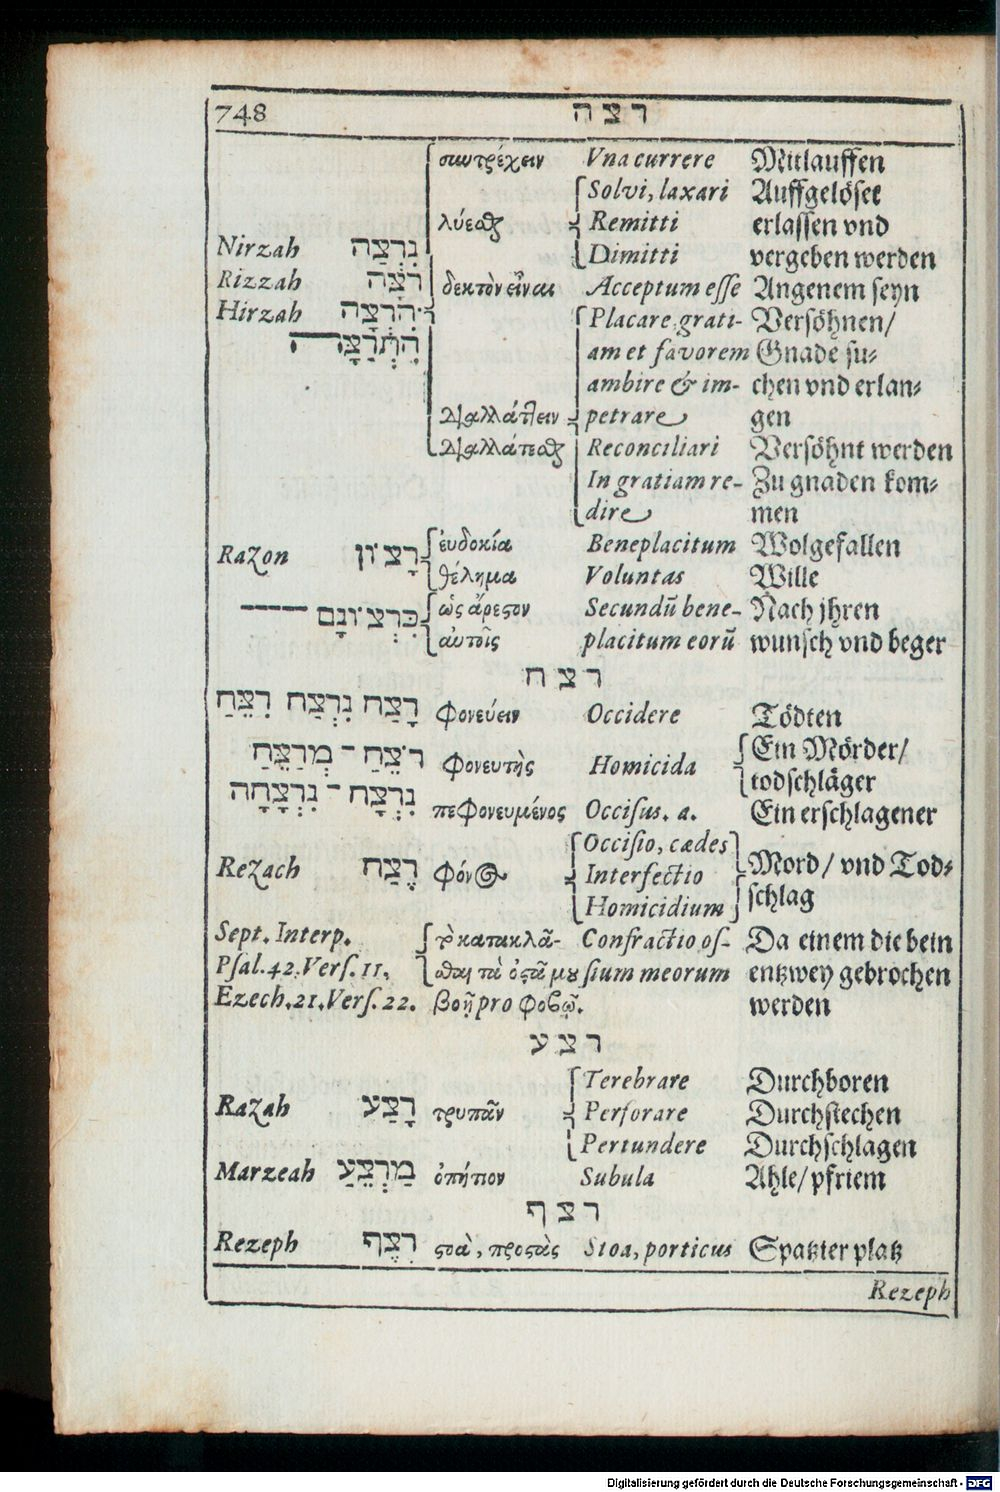 748 רצה
συντρέχειν Vna currere Mitlauffen
Solvi, laxari Auffgelöset
λύεσθαι Remitti erlassen vnd
Nirzah נִרְצַה Dimitti vergeben werden
Rizzah רִצָּה δεκτὸν εἶναι Acceptum esse Angenem seyn
Hirzah הִרְצָה Placare, grati- Versöhnen/
הִתְרַצָּה am et favorem Gnade su⸗
ambire & im- chen vnd erlan⸗
διαλλάττειν petrare gen
διαλλάττεσθαι Reconciliari Versöhnt werden
In gratiam re- Zu gnaden kom⸗
dire men
Razon רָצוֹן ἐυδοκία Beneplacitum Wolgefallen
θέλημα Voluntas Wille
כִּרְצוֹנָם ὡς ἄρεστον Secundũ bene- Nach jhren
αὐτοῖς placitum eorũ wunsch vnd beger
רצח
רָצַח נִרְצַח רִצֵּחַ φονεύειν Occidere Tödten
רוֹצֵחַ - מְרַצֵּחַ φονευτὴς Homicida Ein Mörder/
todschläger
נִרְצָח - נִרְצָחָה πεφονευμένος Occisus. a. Ein erschlagener
Occisio, cædes
Rezach רֶצַח φόνος Interfectio Mord/ vnd Tod⸗
Homicidium schlag
Sept. Interp. τὸ κατακλᾶ- Confractio os- Da einem die bein
Psal. 42. Vers. 11. σθαι τὰ ὀστᾶ μου sium meorum entzwey gebrochen
Ezech. 21. Vers. 22. βοῇ pro φοβῷ. werden
רצע
Terebrare Durchboren
Razah רָצַע τρυπᾶν Perforare Durchstechen
Pertundere Durchschlagen
Marzeah מַרְצֵעַ ὀπήτιον Subula Ahle/ pfriem
רצף
Rezeph רִצֶף στοὰ, προστὰς Stoa, porticus Spatzier platz
Rezeph
Digitalisierung gefördert durch die Deutsche Forschungsgemeinschaft - DFG